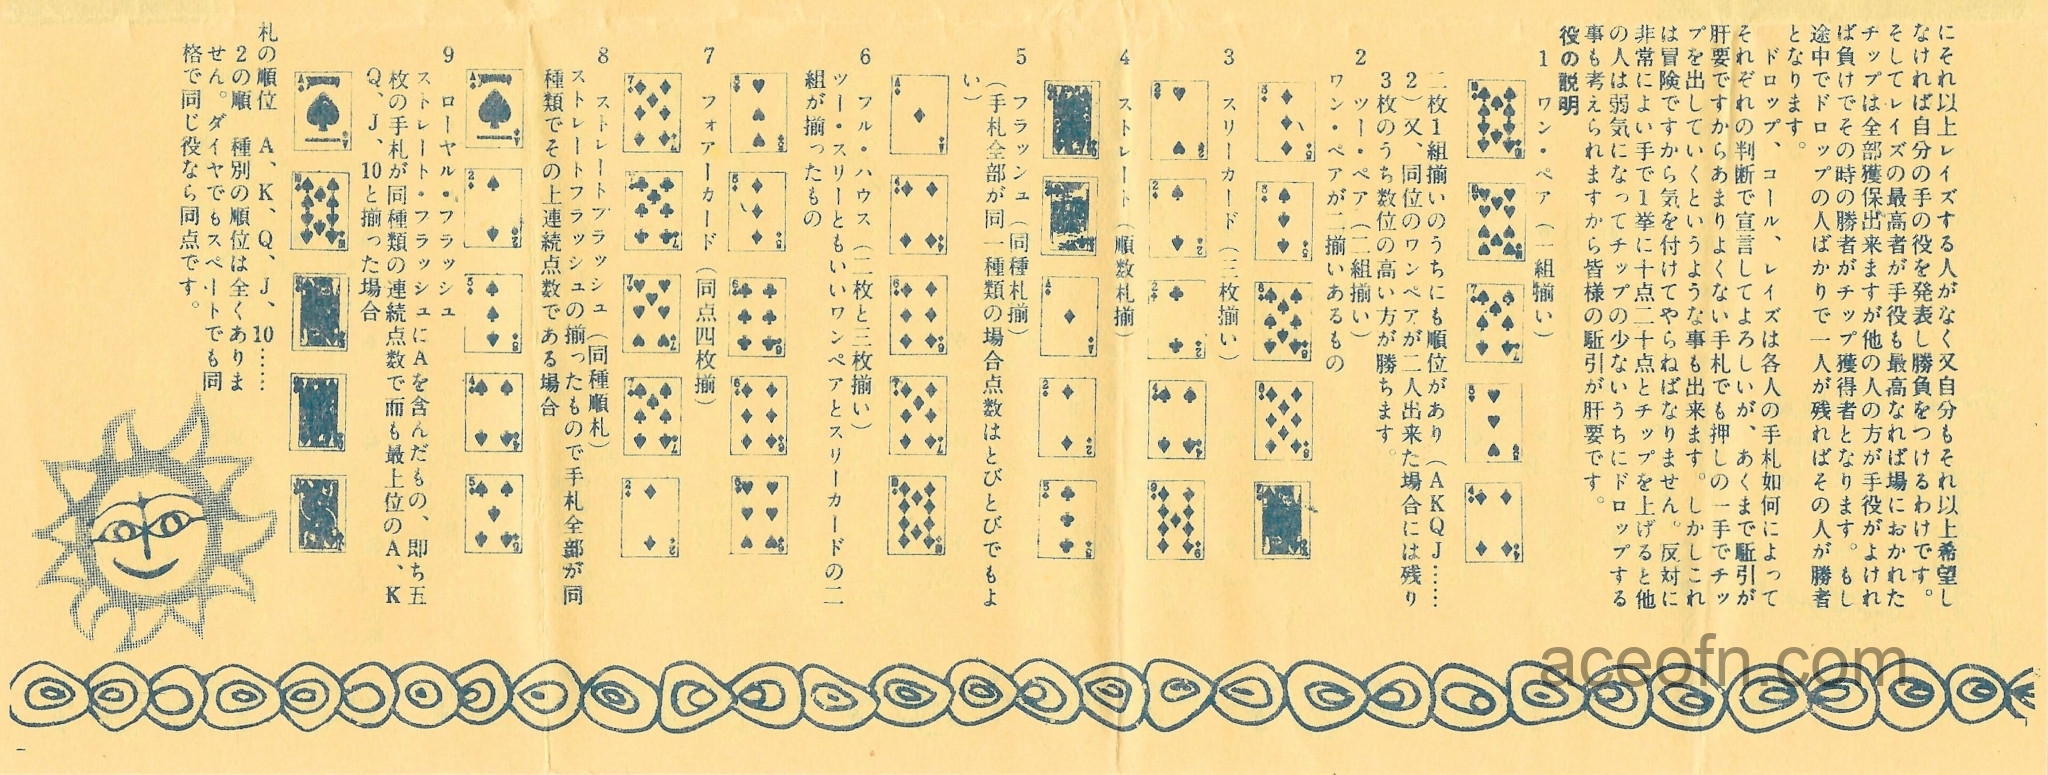 にそれ以上レイズする人がなく又自分もそれ以上希望し
なければ自分の手の役を発表し勝負をつけるわけです。
そしてレイズの最高者が手役も最高なれば場におかれた
チップは全部獲保出来ますが他の人の方が手役がよけれ
ば負けでその時の勝者がチップ獲得者となります。もし
途中でドロップの人ばかりで一人が残ればその人が勝者
となります。
ドロップ、コール、レイズは各人の手札如何によって
それぞれの判断で宣言してよろしいが、あくまで駈引が
肝要ですからあまりよくない手札でも押しの一手でチッ
プを出していくというような事も出来ます。しかしこれ
は冒険ですから気を付けてやらねばなりません。反対に
非常によい手で1挙に十点二十点とチップを上げると他
の人は弱気になってチップの少ないうちにドロップする
事も考えられますから皆様の駈引が肝要です。
役の説明
1 ワン・ペア（一組揃い）
二枚1組揃いのうちにも順位があり（AKQJ……
2）又、同位のワンペアが二人出来た場合には残り
3枚のうち数位の高い方が勝ちます。
2 ツー・ペア（二組揃い）
ワン・ペアが二揃いあるもの
3 スリーカード（三枚揃い）
4 ストレート（順数札揃）
5 フラッシュ（同種札揃）
（手札全部が同一種類の場合点数はとびとびでもよ
い）
6 フル・ハウス（二枚と三枚揃い）
ツー・スリーともいいワンペアとスリーカードの二
組が揃ったもの
7 フォアーカード（同点四枚揃）
8 ストレートフラッシュ（同種順札）
ストレートフラッシュの揃ったもので手札全部が同
種類でその上連続点数である場合
9 ローヤル・フラッシュ
ストレート・フラッシュにAを含んだもの、即ち五
枚の手札が同種類の連続点数で而も最上位のA、K
Q、J、10と揃った場合
札の順位 A、K、Q、J、10……
2の順 種別の順位は全くありま
せん。ダイヤでもスペートでも同
格で同じ役なら同点です。
aceofn.com